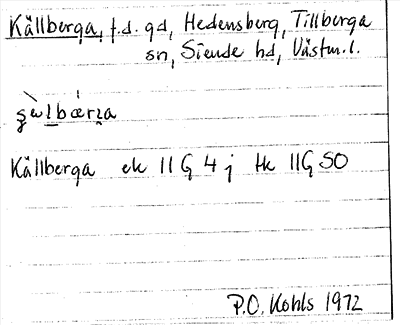 Källberga, f.d. gd, Hedensberg, Tillberga
sn, Siende hd, Västm.l.
Källberga ek 11 G 4 j tk 11G SO
P.O. Kohls 1972